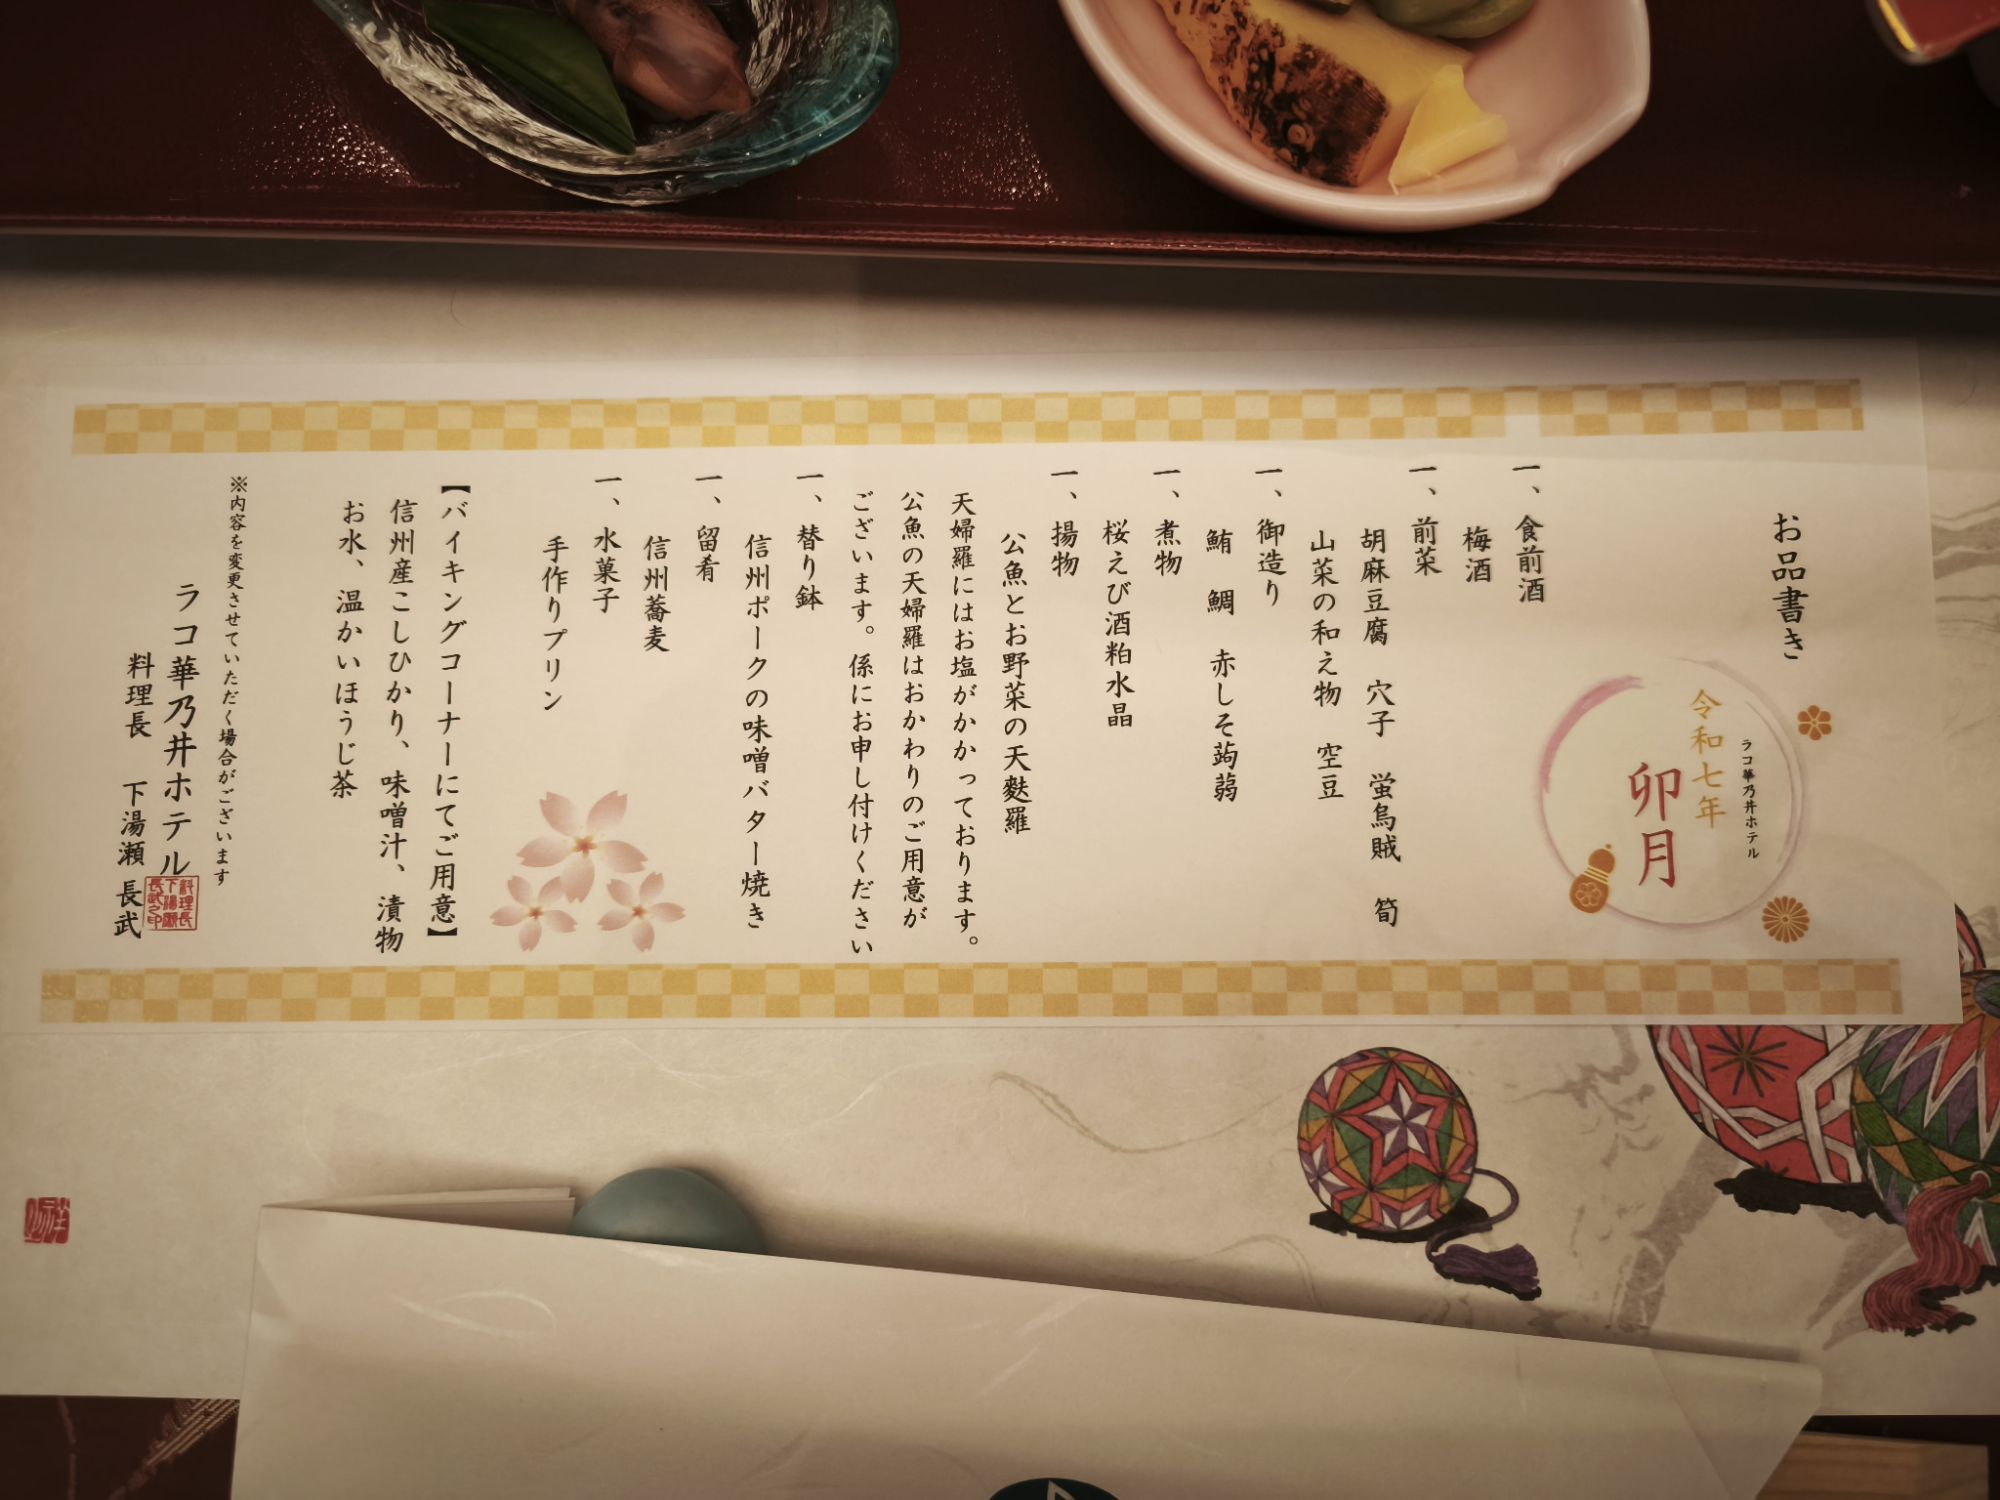 お品書き
ラコ華乃井ホテル
令和七年
卯月
一、食前酒
梅酒
一、前菜
胡麻豆腐 穴子 蛍烏賊 筍
山菜の和え物 空豆
一、御造り
鮪 鯛 赤しそ蒟蒻
一、煮物
桜えび酒粕水晶
一、揚物
公魚とお野菜の天麩羅
天婦羅にはお塩がかかっております。
公魚の天婦羅はおかわりのご用意が
ございます。係にお申し付けください
一、替り鉢
信州ポークの味噌バター焼き
一、留肴
信州蕎麦
一、水菓子
手作りプリン
【バイキングコーナーにてご用意】
信州産こしひかり、味噌汁、漬物
お水、温かいほうじ茶
※内容を変更させていただく場合がございます
ラコ華乃井ホテル
料理長 下湯瀬 長武
料理長
下湯瀬
長武之印